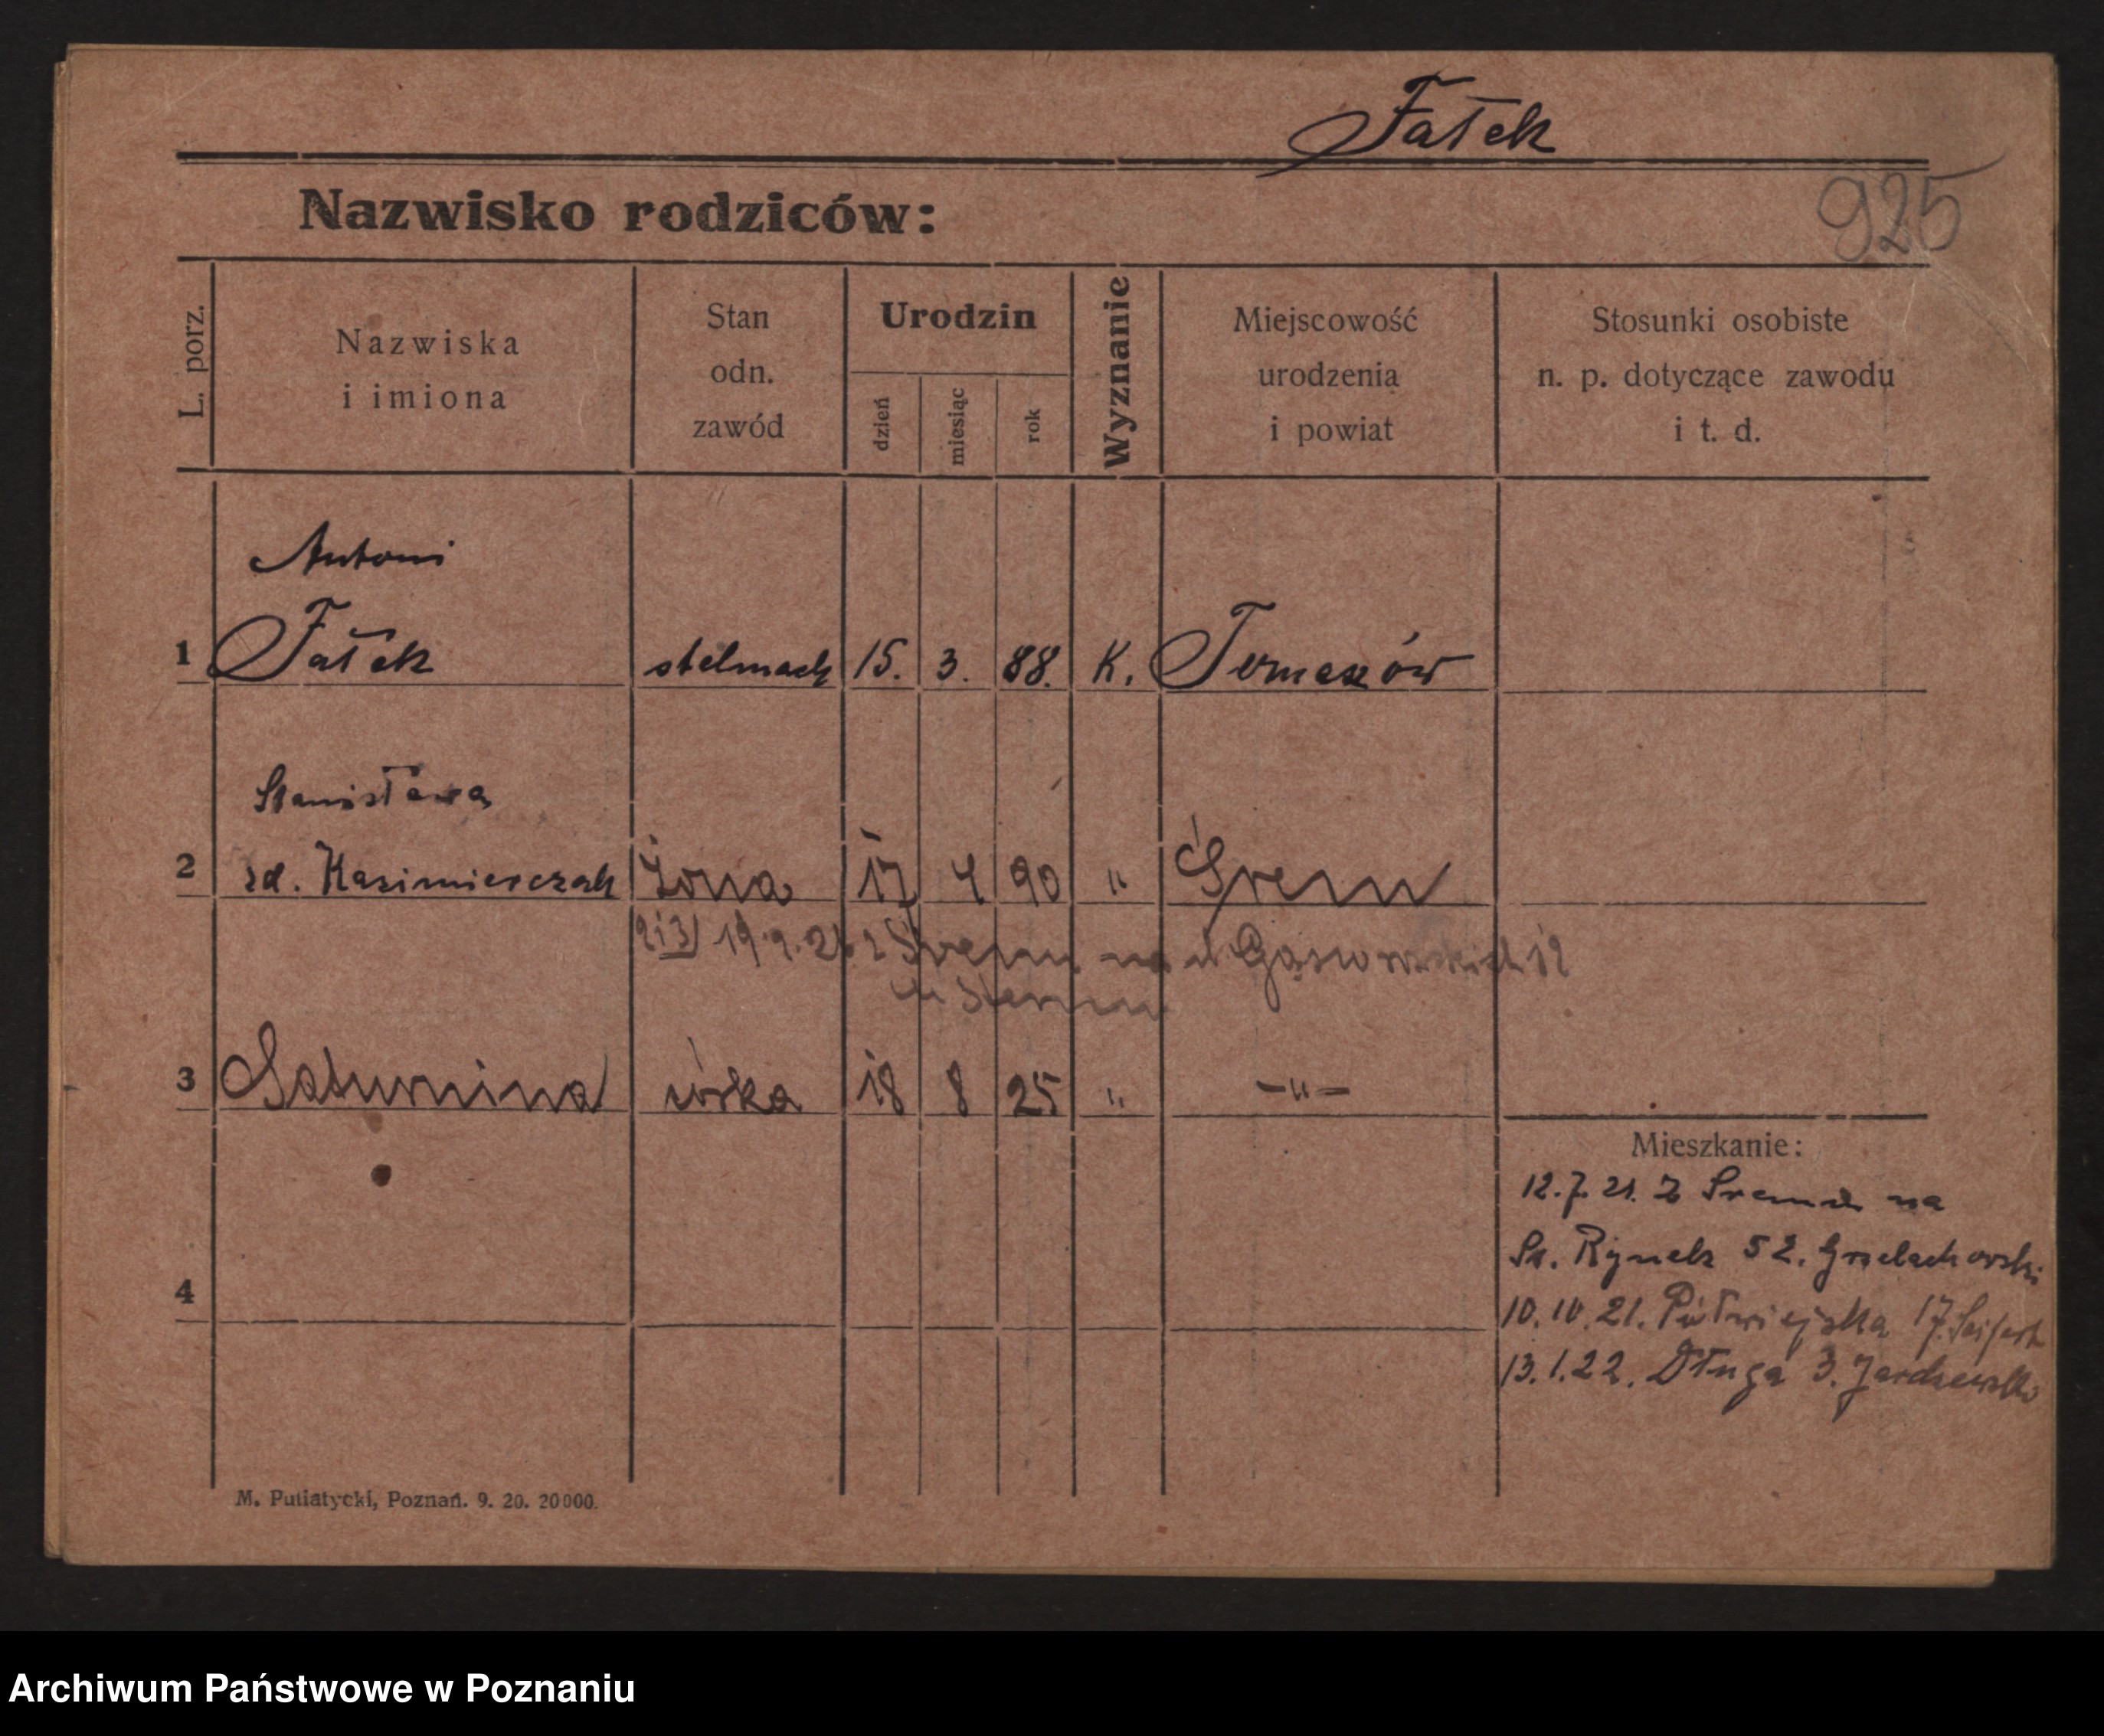 Fałek
925
Nazwisko rodziców:
L. porz.
Nazwiska
i imiona
Stan
odn.
zawód
Urodzin
dzień
miesiąc
rok
Wyznanie
Miejscowość
urodzenia
i powiat
Stosunki osobiste
n. p. dotyczące zawodu
i t. d.
Antoni
1 Fałek stelmach 15. 3. 88. K.
Stanisława
2 zd. Kazimierczak żona 17 4 90 " Śrem
2i3) 19.9. Śrem na
3 Saturnina córka 18 8 25 " -"-
Mieszkanie:
12.7.21. Z Śremu na
St. Rynek 52.
10.10.21. Półwiejska 17.
13.1.22. Długa 3.
4
M. Putiatycki, Poznań. 9. 20. 20000.
Archiwum Państwowe w Poznaniu